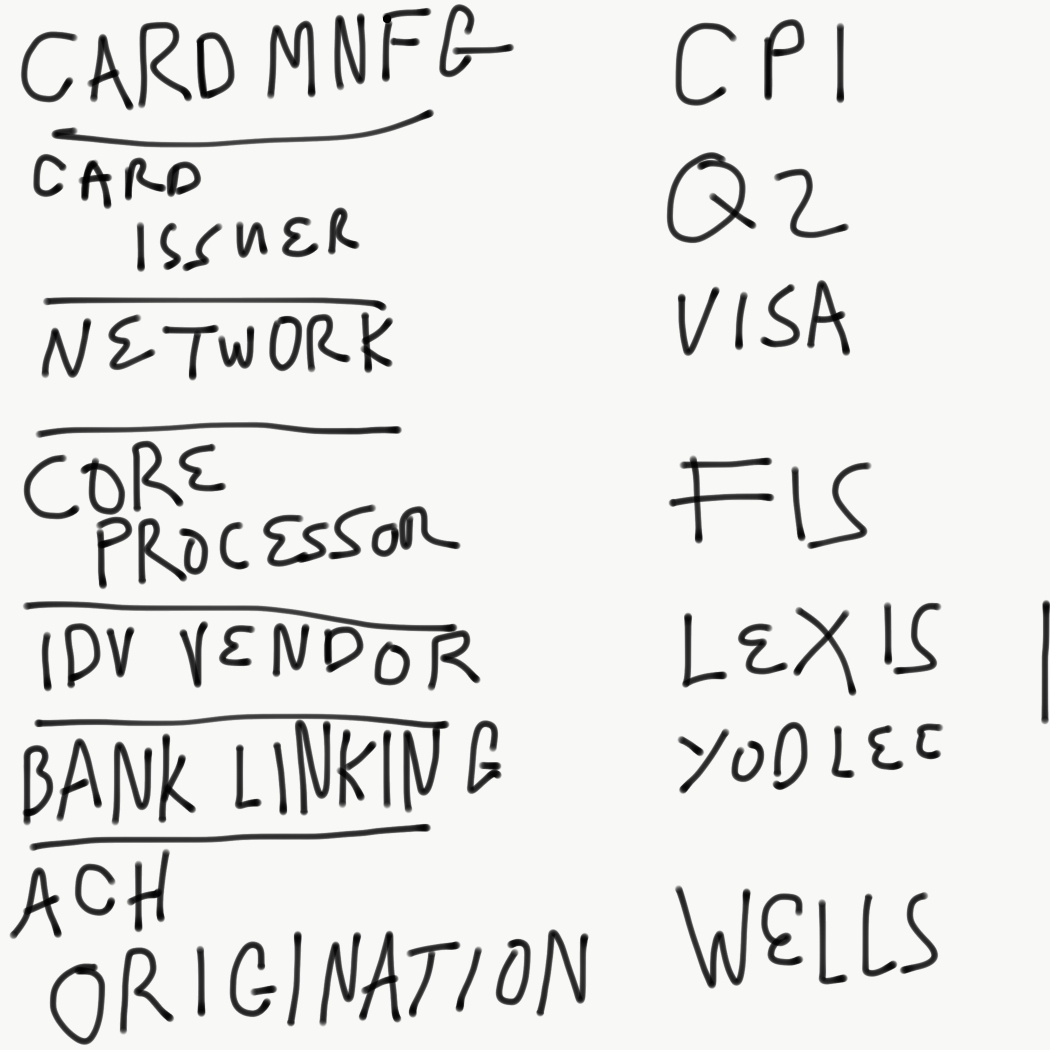 CARD MNFG CPI
CARD
ISSUER Q2
NETWORK VISA
CORE
PROCESSOR FIS
IDV VENDOR LEXIS
BANK LINKING YODLEE
ACH
ORIGINATION WELLS